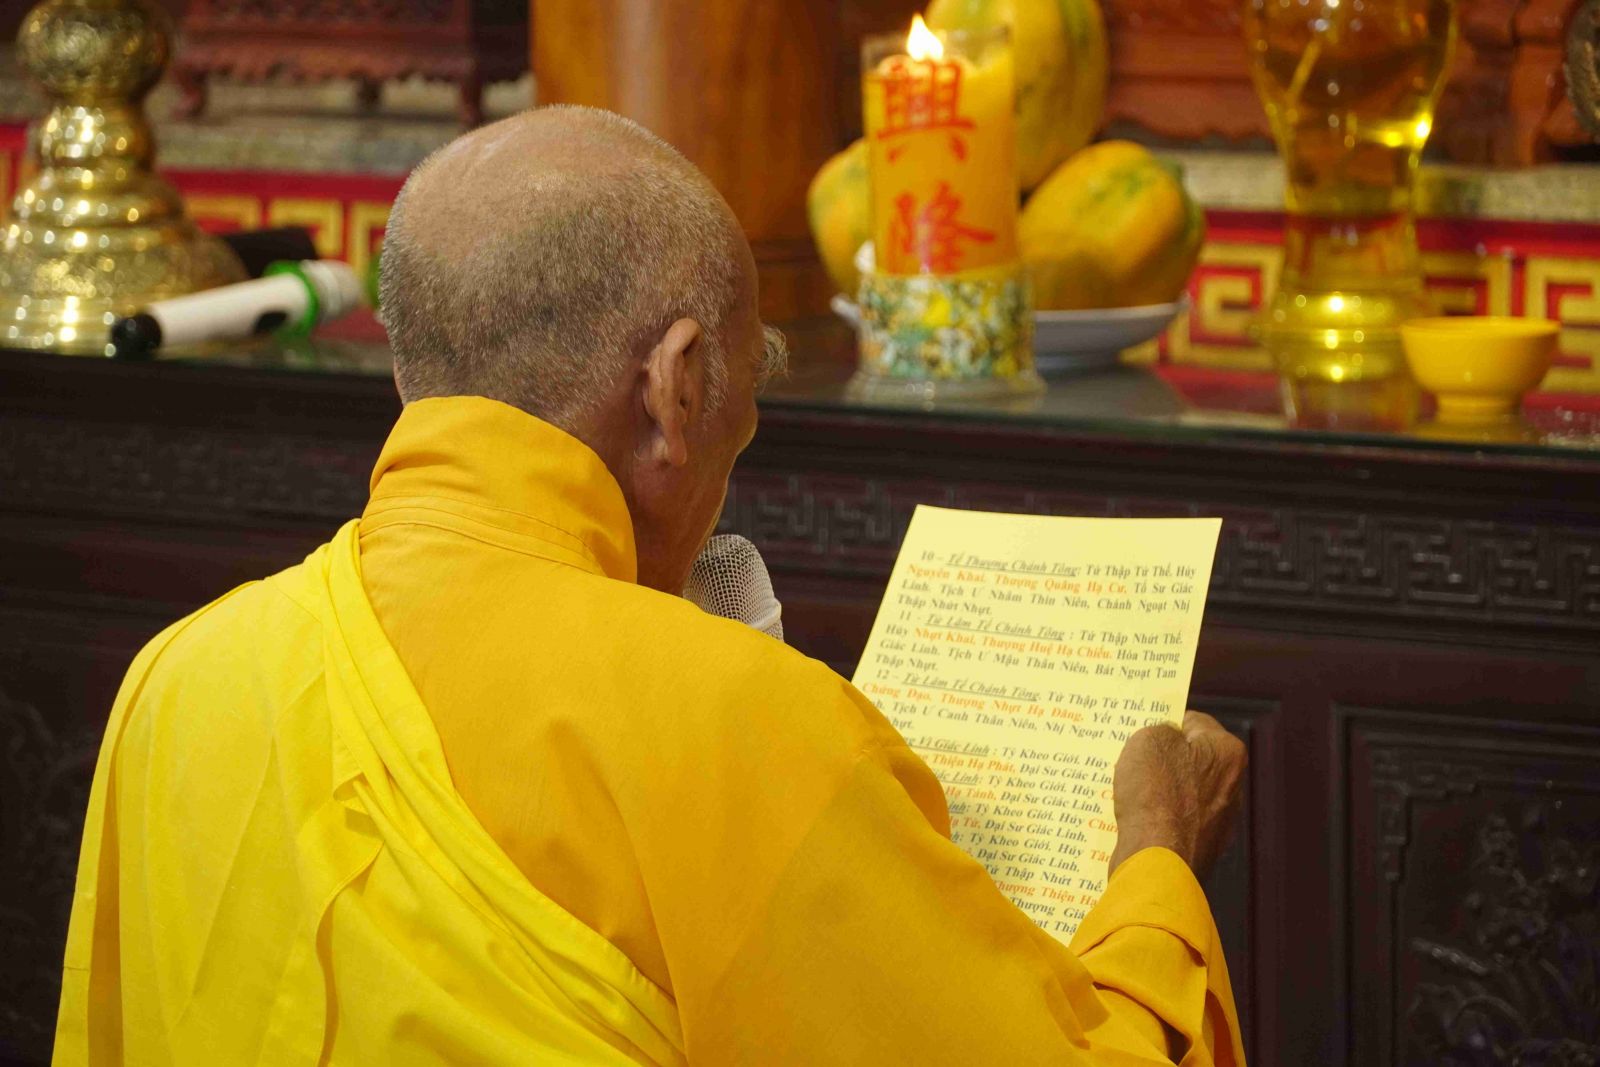 興
隆
10 – Tế Thượng Chánh Tông: Tứ Thập Tứ Thế. Húy
Nguyên Khai. Thượng Quảng Hạ Cư. Tổ Sư Giác
Linh. Tịch Ư Nhâm Thìn Niên, Chánh Ngoạt Nhị
Thập Nhứt Nhựt.
11 - Từ Lâm Tế Chánh Tông : Tứ Thập Nhứt Thế.
Húy Nhựt Khai. Thượng Huệ Hạ Chiếu. Hòa Thượng
Giác Linh. Tịch Ư Mậu Thân Niên, Bát Ngoạt Tam
Thập Nhựt.
12 – Từ Lâm Tế Chánh Tông. Tứ Thập Tứ Thế. Húy
Chứng Đạo. Thượng Nhựt Hạ Đăng. Yết Ma
Tịch Ư Canh Thân Niên, Nhị Ngoạt
Vì Giác Linh : Tỳ Kheo Giới. Húy
Thiện Hạ Phát, Đại Sư Giác
Giác Linh: Tỳ Kheo Giới. Húy
Hạ Tánh. Đại Sư Giác Linh.
Tỳ Kheo Giới. Húy
Hạ Từ. Đại Sư Giác Linh.
Tỳ Kheo Giới. Húy
Đại Sư Giác Linh.
Tứ Thập Nhứt Thế.
Thượng Thiện
Thượng